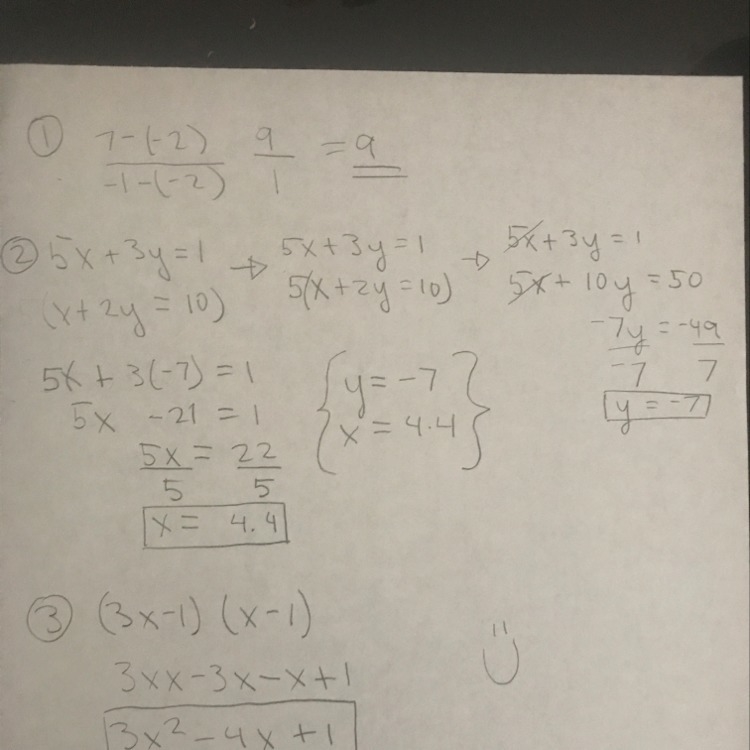 ① 7-(-2)/-1-(-2) 9/1 = 9
② 5x+3y=1 → 5x+3y=1 → 5x+3y=1
(x+2y=10) 5(x+2y=10) 5x+10y=50
-7y/-7 = -49/7
y=-7
5x+3(-7)=1
5x -21=1
5x/5 = 22/5
x= 4.4
{y=-7
x=4.4}
③ (3x-1)(x-1)
3xx-3x-x+1
3x²-4x+1